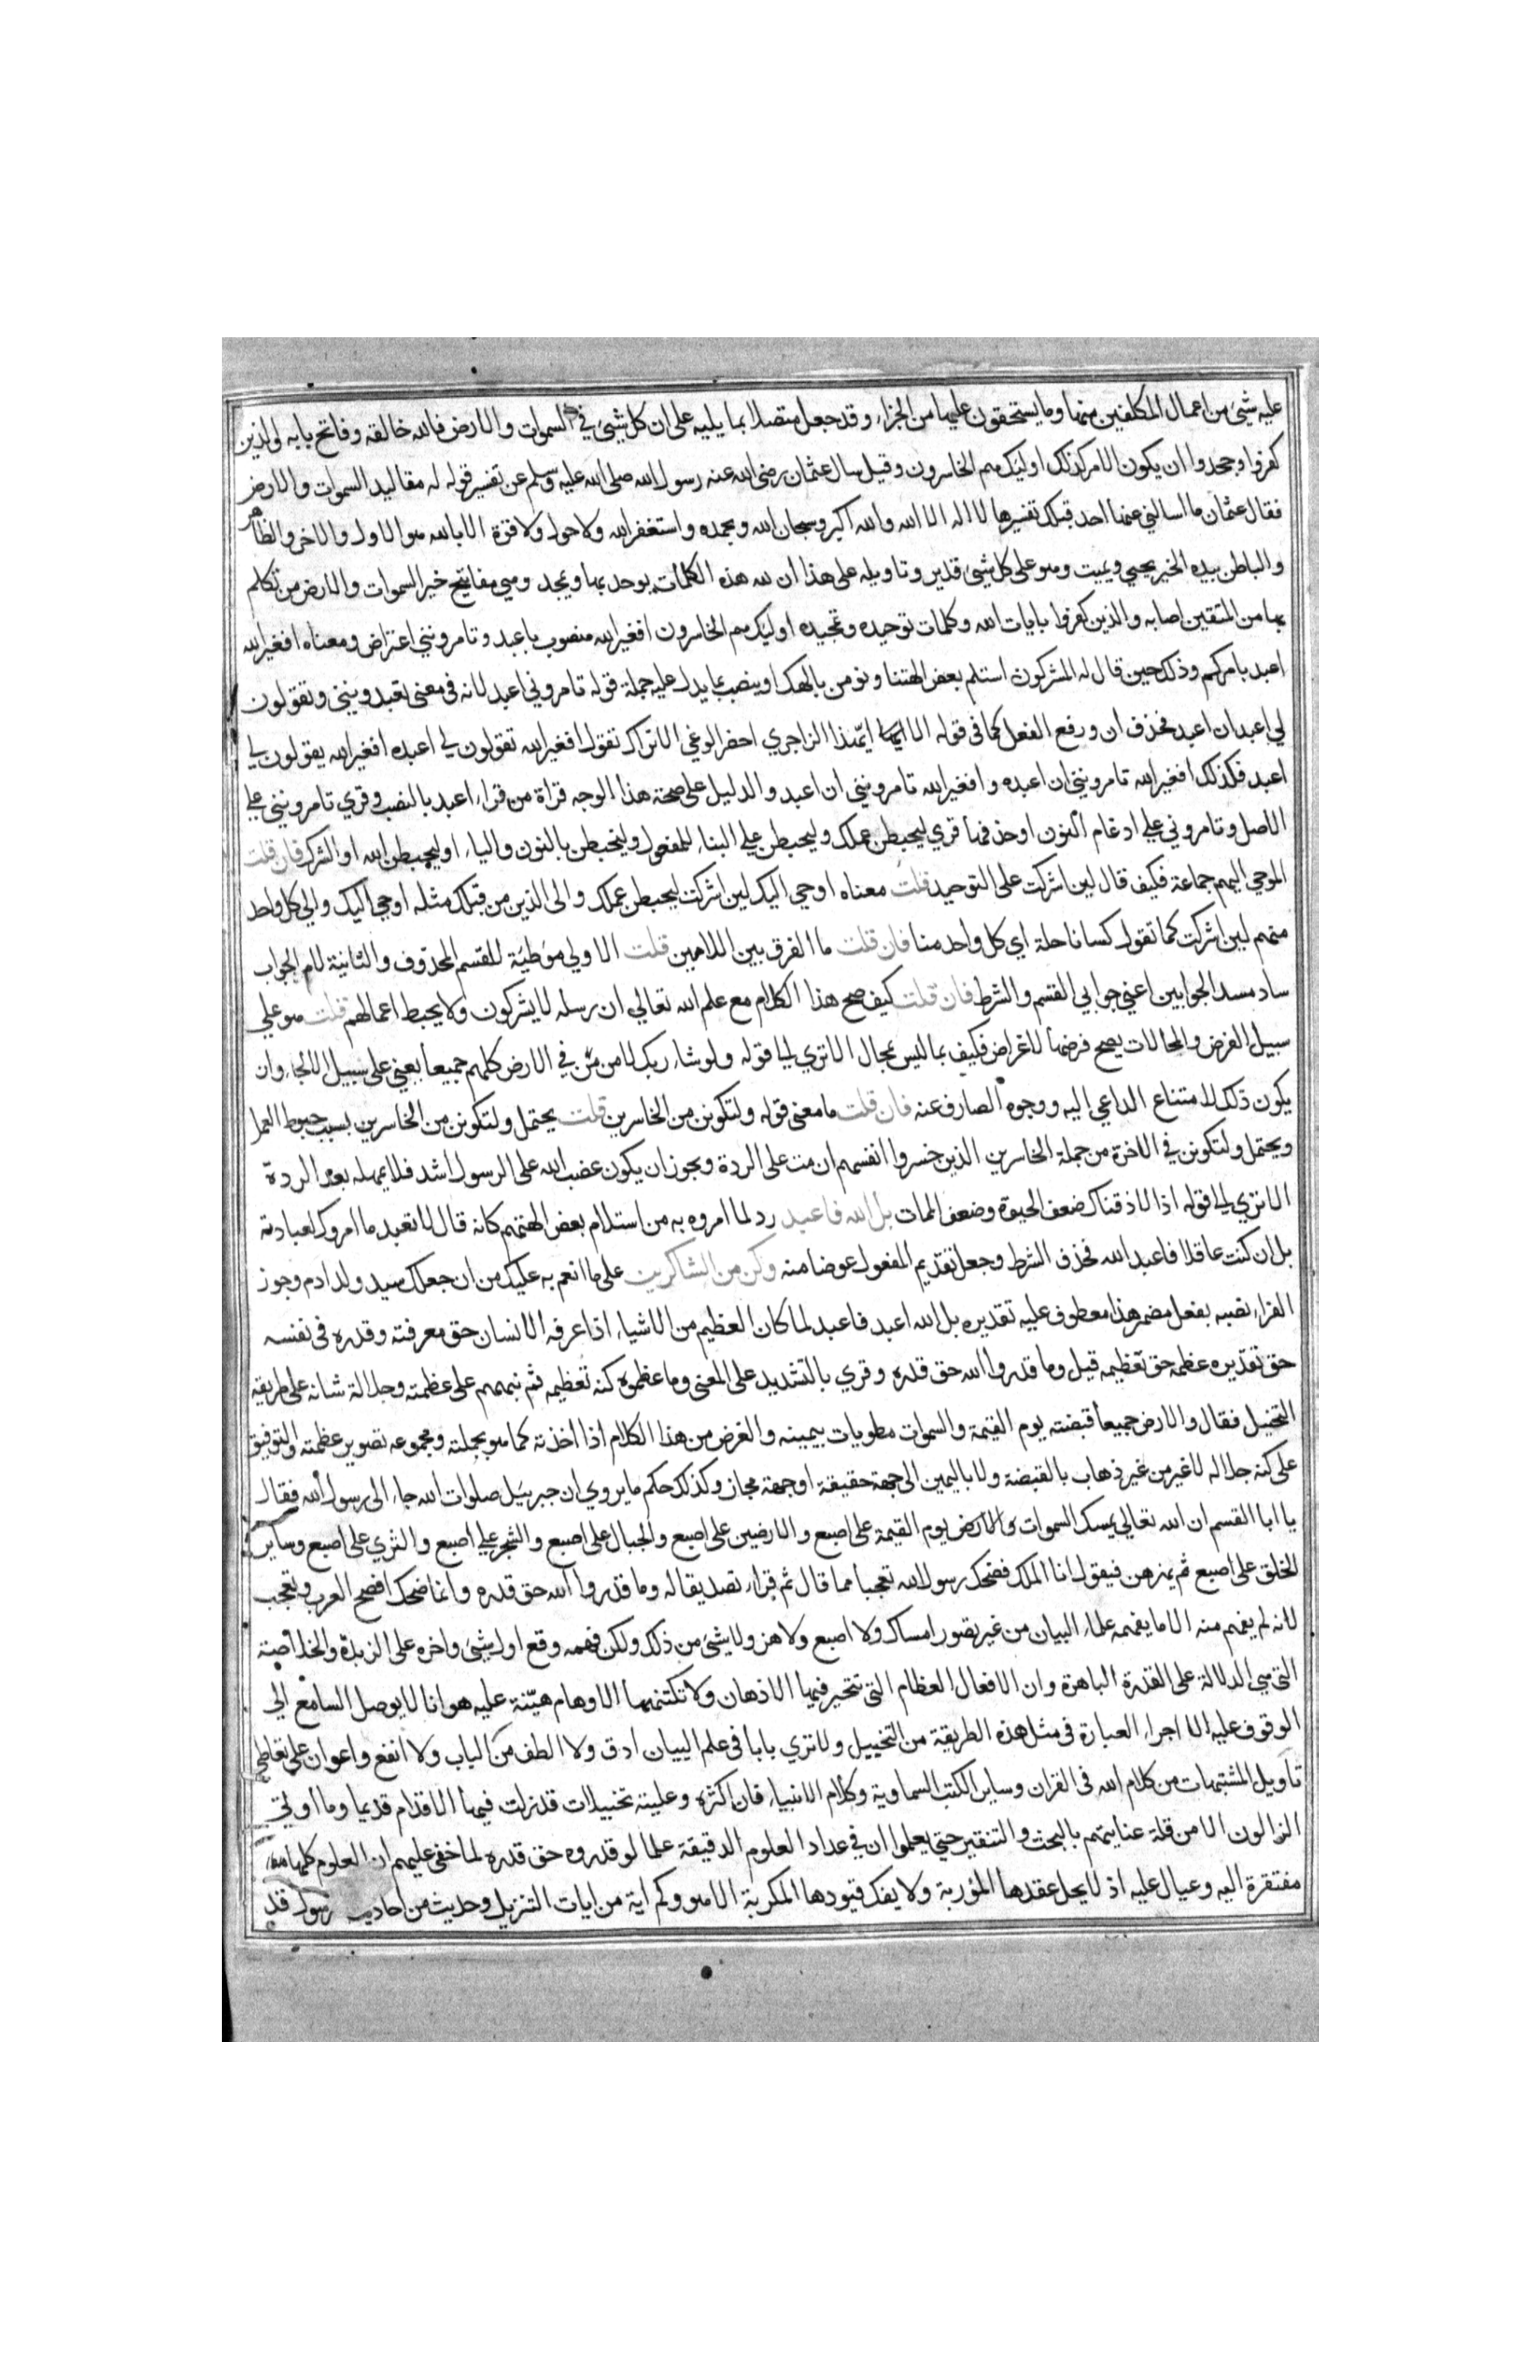 عليه شيئ من اعمال المكلفين منها وما يستحقون عليها من الجزاء وقد جعل متصلا بما يليه على ان كل شيئ في السموات والارض فالله خالقه وفاتح بابه والذين
كفروا وجحدوا ان يكون الامر كذلك اوليك هم الخاسرون وقيل سال عثمان رضى الله عنه رسول الله صلى الله عليه وسلم عن تفسير قوله له مقاليد السموات والارض
فقال عثمان ما سالني عنها احد قبلك تفسيرها لا اله الا الله والله اكبر وسبحان الله وبحمده واستغفر الله ولا حول ولا قوة الا بالله هو الاول والاخر والظاهر
والباطن بيده الخير يحيي ويميت وهو على كل شيئ قدير وتاويله على هذا ان لله هذه الكلمات يوحد بها ويمجد وهي مفاتيح خير السموات والارض من تكلم
بها من المتقين اصابه والذين كفروا بايات الله وكلمات توحيده وتمجيده اوليك هم الخاسرون افغير الله منصوب باعبد وتامرونني اعتراض ومعناه افغير الله
اعبد بامركم وذلك حين قال له المشركون استلم بعض الهتنا ونومن بالهك او ينصب بما يدل عليه جملة قوله تامروني اعبد لانه فى معنى تعبدونني وتقولون
لي اعبد ان اعبد فحذف ان ورفع الفعل كما فى قوله الا ايهذا الزاجري احضر الوغي الا تراك تقول افغير الله تقولون لي اعبده افغير الله يقولون لي
اعبد فكذلك افغير الله تامرونني ان اعبده وافغير الله تامرونني ان اعبد والدليل على صحة هذا الوجه قراة من قراء اعبد بالنصب وقري تامرونني علي
الاصل وتامروني علي ادغام النون او حذفها قري ليحبطن عملك وليحبطن علي البناء للمفعول ولنحبطن بالنون والياء اوليحبطن الله او الشرك فان قلت
الموحي اليهم جماعة فكيف قال لين اشركت على التوحيد قلت معناه اوحي اليك لين اشركت ليحبطن عملك والى الذين من قبلك مثله اوحي اليك والي كل واحد
منهم لين اشركت كما تقول كسانا حلة اي كل واحد منا فان قلت ما الفرق بين اللامين قلت الاولي موطيّة للقسم المحذوف والثانية لام الجواب
ساد مسد الجوابين اعني جوابي القسم والشرط فان قلت كيف صح هذا الكلام مع علم الله تعالي ان رسله لا يشركون ولا يحبط اعمالهم قلت هو على
سبيل الفرض والمحالات يصح فرضها لاغراض فكيف بما ليس بمحال الا تري ليا قوله ولو شاء ربك لامن من في الارض كلهم جميعا يعني على سبيل الالجاء وان
يكون ذلك لامتناع الداعي اليه ووجوه الصارف عنه فان قلت ما معنى قوله ولتكونن من الخاسرين قلت يحتمل ولتكونن من الخاسرين بسبب حبوط العمل
ويحتمل ولتكونن في الاخرة من جملة الخاسرين الذين خسروا انفسهم ان مت على الردة ويجوز ان يكون غضب الله على الرسول اشد فلا يمهله بعد الردة
الا تري الي قوله اذا لاذقناك ضعف الحيوة وضعف الممات بل الله فاعبد رد لما امروه به من استلام بعض الهتهم كانه قال لا تعبد ما امروك لعبادته
بل ان كنت عاقلا فاعبد الله فحذف الشرط وجعل تقديم المفعول عوضا منه وكن من الشاكرين على ما انعم به عليك من ان جعلك سيد ولد ادم وجوز
الفراء نصبه بفعل مضمر هذا معطوف عليه تقديره بل الله اعبد فاعبد لما كان العظيم من الاشياء اذا عرفه الانسان حق معرفته وقدره فى نفسه
حق تقديره عظمه حق تعظيمه قيل وما قدروا الله حق قدره وقري بالتشديد على المعنى وما عظموه كنه تعظيمه ثم نبههم على عظمته وجلالة شانه على طريقة
التخييل فقال والارض جميعا قبضته يوم القيمة والسموات مطويات بيمينه والغرض من هذا الكلام اذا اخذته كما هو بجملته ومجموعه تصوير عظمته والتوفيق
على كنه جلاله لا غير من غير ذهاب بالقبضة ولا باليمين الى جهة حقيقة او جهة مجاز وكذلك حكم ما يروي ان جبرييل صلوات الله جاء الى رسول الله فقال
يا ابا القسم ان الله تعالي يمسك السموات والارض يوم القيمة على اصبع والارضين على اصبع والجبال على اصبع والشجر علي اصبع والثري على اصبع وساير
الخلق على اصبع ثم يهزهن فيقول انا الملك فضحك رسول الله تعجبا مما قال ثم قراء تصديقا له وما قدروا الله حق قدره وانما ضحك افصح العرب وتعجب
لانه لم يفهم منه الا ما يفهمه علماء البيان من غير تصور امساك ولا اصبع ولا هز ولا شيئ من ذلك ولكن فهمه وقع اول شيئ واخره على الزبدة والخلاصة
التي هي الدلالة على القدرة الباهرة وان الافعال العظام التى تتحير فيها الاذهان ولا تكتنهها الاوهام هيّنة عليه هوانا لا يوصل السامع الي
الوقوف عليه الا اجراء العبارة فى مثل هذه الطريقة من التخييل ولا تري بابا فى علم البيان ادق ولا الطف من الباب ولا انفع واعوان على تعاطي
تاويل المشتبهات من كلام الله فى القران وساير الكتب السماوية وكلام الانبياء فان اكثره وعليته تخييلات قد زلت فيها الاقدام قديما وما اوتي
الزالون الا من قلة عنايتهم بالبحث والتنقير حتي يعلموا ان في عداد العلوم الدقيقة علما لو قدروه حق قدره لما خفى عليهم ان العلوم كلها
مفتقرة اليه وعيال عليه اذ لا يحل عقدها المؤربة ولا يفك قيودها المكربة الا هو وكم اية من ايات التنزيل وحديث من احاديث رسول قد